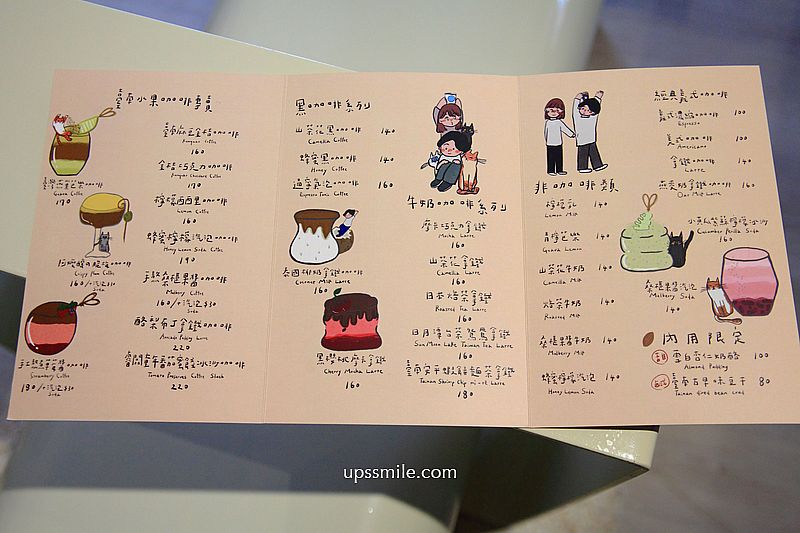 臺南小果咖啡專賣
臺南麻豆金桔咖啡
160
金桔巧克力咖啡
170
芭樂咖啡
Guava Coffee
170
檸檬西西里咖啡
Lemon Coffee
160
蜂蜜檸檬汽泡咖啡
Honey Lemon Soda Coffee
190
阿嬤酸梅咖啡
Crispy Plum Coffee
160/+汽泡$30
Soda
手熬桑椹果醬咖啡
Mulberry Coffee
160/+汽泡$30
Soda
酪梨布丁拿鐵
Avocado Pudding Latte
220
手熬草莓果醬咖啡
Strawberry Coffee
190/+汽泡$30
Soda
關廟番茄蜜餞冰沙咖啡
Tomato Preserves Coffee Slush
220
黑咖啡系列
山茶花黑咖啡 140
Camellia Coffee
蜂蜜黑咖啡 140
Honey Coffee
濃縮氣泡咖啡 160
Espresso Tonic Coffee
泰國椰奶拿鐵咖啡
Coconut Milk Latte
160
黑櫻桃摩卡拿鐵
Cherry Mocha Latte
160
牛奶咖啡系列
摩卡巧克力拿鐵
Mocha Latte
160
山茶花拿鐵
Camellia Latte
160
日本焙茶拿鐵
Roasted Tea Latte
160
日月潭台茶鴛鴦拿鐵
Sun Moon Lake Taiwan Tea Latte
160
臺南安平蝦餅麵茶拿鐵
Tainan Shrimp Chip mi-ti Latte
180
非咖啡類
檸檬乳 140
Lemon Milk
青檸芭樂 140
Guava Lemon
山茶花牛奶 140
Camellia Milk
焙茶牛奶 140
Roasted Milk
桑椹果醬牛奶 140
Mulberry Milk
蜂蜜檸檬汽泡 140
Honey Lemon Soda
經典義式咖啡
義式濃縮 100
Espresso
美式咖啡 100
Americano
拿鐵 140
Latte
燕麥奶拿鐵 160
Oat Milk Latte
小黃瓜紫蘇檸檬冰沙
Cucumber Perilla Soda
160
桑椹果醬汽泡
Mulberry Soda
140
內用限定
甜 雪白杏仁奶酪 100
Almond Pudding
鹹 臺南古早味豆干 80
Tainan dried bean curd
upssmile.com